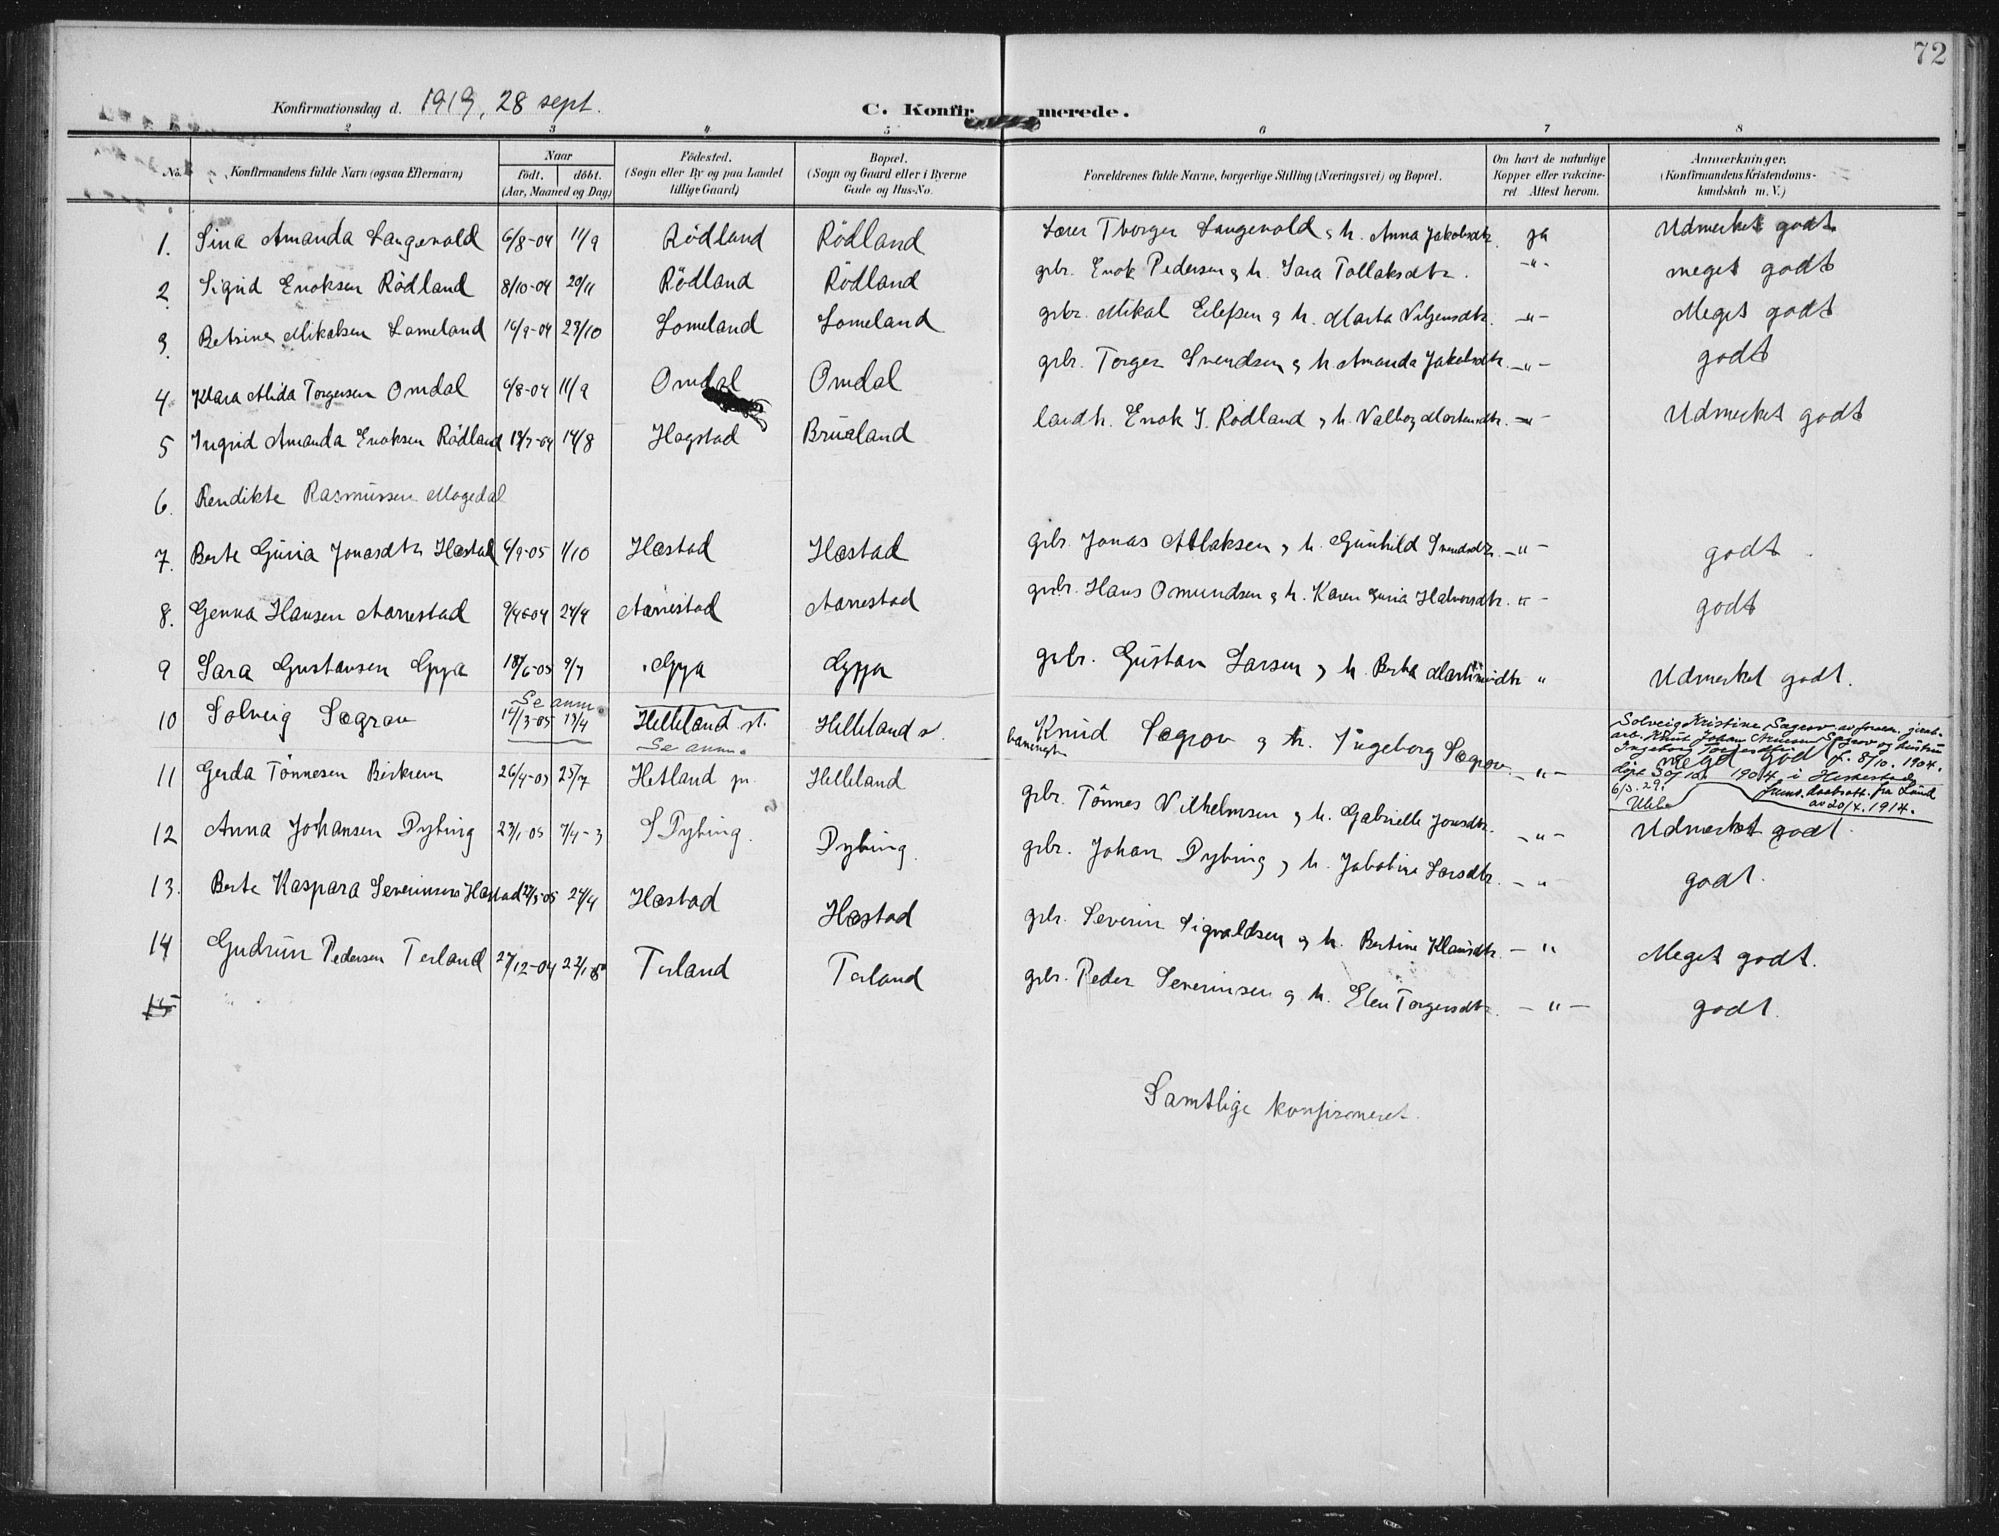 72
Konfirmationsdag d. 1919, 28 sept.
C. Konfirmerede.
2 3 4 5 6 7 8
No. Konfirmandens fulde Navn (ogsaa Efternavn)
Naar
født. døbt.
(Aar, Maaned og Dag)
Fødested.
(Sogn eller By og paa Landet
tillige Gaard)
Bopæl.
(Sogn og Gaard eller i Byerne
Gade og Hus-No.
Forældrenes fulde Navne, borgerlige Stilling (Næringsvei) og Bopæl.
Om havt de naturlige
Kopper eller vakcine-
ret Attest herom.
Anmerkninger.
(Konfirmandens Kristendoms-
kundskab m. V.)
1. Sina Amanda Langevold 6/8-04 11/9 Rödland Rödland Lærer Thorger Langevold & h. Anna Jakobsdtr. ja Udmerket godt
2. Sigrid Enoksen Rödland 8/10-04 20/11 Rödland Rödland grbr. Enok Pedersen & h. Sara Tollaksdtr. -"- meget godt
3. Betsine Mikalsen Lomeland 16/9-04 23/10 Lomeland Lomeland grbr. Mikal Eilefsen & h. Marta -"- Meget godt
4. Klara Alida Torgersen Omdal 6/8-04 11/9 Omdal Omdal grbr. Torger Svendsen & h Amanda Jakobsdtr. -"- godt
5 Ingrid Amanda Enoksen Rödland 13/7-04 14/8 Hogstad Brualand landh. Enok J. Rödland & h. Valborg Martensdtr. -"- Udmerket godt
6. Bendikte Rasmussen Mogedal
7. Berte Guria Jonasdtr Hæstad 6/9-05 1/10 Hæstad Hæstad grbr. Jonas Atlaksen & h. Gunhild Svendsdtr. -"- godt
8. Genna Hansen Aarrestad 9/4-04 24/4 Aarrestad Aarrestad grbr. Hans Omundsen & h. Karen Guria Halvorsdtr. "- godt
9 Sara Gustavsen Gyya 18/6-05 9/7 Gyya Gyya grbr. Gustav Larsen & h. Berta " Udmerket godt.
Se anm.
10 Solveig Sægrov 14/3-05 13/4 Helleland st. Helleland s. Knud Sægrov & h. Ingeborg Sægrov -"- meget god
Se anm.
Solveig Kristine Sægrov av foreldr. jernb.
arb. Knut Johan Sægrov og hustru
Ingeborg f. 8/10. 1904.
døpt 30/10 1904 i Heskestad
6/3. 29. daabsatt. fra Lund
av 20/4. 1914.
11 Gerda Tönnesen Birkrem 26/4-05 25/7 Hetland pr. Helleland grbr. Tönnes Vilhelmsen & h. Gabrielle Jonsdtr. -"- Udmerket godt.
12 Anna Johansen Dybing 23/1-05 7/4-3 S Dybing. Dybing. grbr. Johan Dybing & h. Jakobine Larsdtr. -" godt.
13. Berte Kaspara Severinsens Hæstad 27/3-05 24/4 Hæstad Hæstad grbr. Severin Sigvaldsen & h. Bertine Klausdtr. -" Meget godt.
14 Gudrun Pedersen Terland 27/12-04 22/1-05 Terland Terland grbr. Peder Severinsen & h. Elen Torgersdtr. -"- godt.
15
Samtlige konfirmeret.